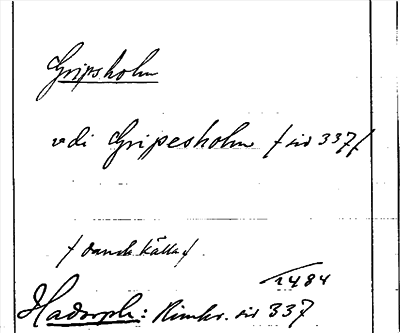 Gripsholm
vdi Gripesholm / sid 337/
/ dansk källa /
1484
Hadorph: Rimkr. sid 337